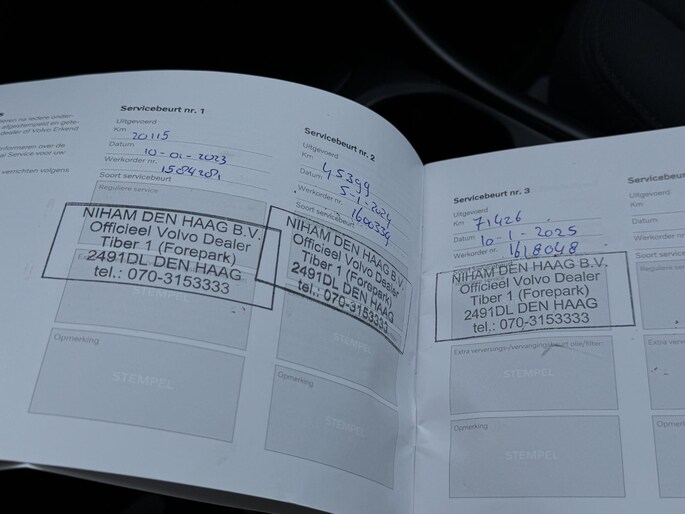 eren na iedere onder-
afgestempeld en gete-
dealer of Volvo Erkend
nformeren over de
Service voor uw
verrichten volgens
Servicebeurt nr. 1
Uitgevoerd
Km 20115
Datum 10-01-2023
Werkorder nr. 1584281
Soort servicebeurt
Reguliere service
NIHAM DEN HAAG B.V.
Officieel Volvo Dealer
Tiber 1 (Forepark)
2491DL DEN HAAG
tel.: 070-3153333
Opmerking
STEMPEL
Servicebeurt nr. 2
Uitgevoerd
Km 45399
Datum 5-1-2024
Werkorder nr. 1600334
Soort servicebeurt
NIHAM DEN HAAG B.V.
Officieel Volvo Dealer
Tiber 1 (Forepark)
2491DL DEN HAAG
tel.: 070-3153333
Opmerking
STEMPEL
Servicebeurt nr. 3
Uitgevoerd
Km 71426
Datum 10-1-2025
Werkorder nr. 1618048
NIHAM DEN HAAG B.V.
Officieel Volvo Dealer
Tiber 1 (Forepark)
2491DL DEN HAAG
tel.: 070-3153333
Extra verversings-/vervangingsbeurt olie/filter
STEMPEL
Opmerking
STEMPEL
Servicebeurt
Uitgevoerd
Km
Datum
Werkorder nr.
Soort servicebeurt
Reguliere service
Extra verversings
Opmerking